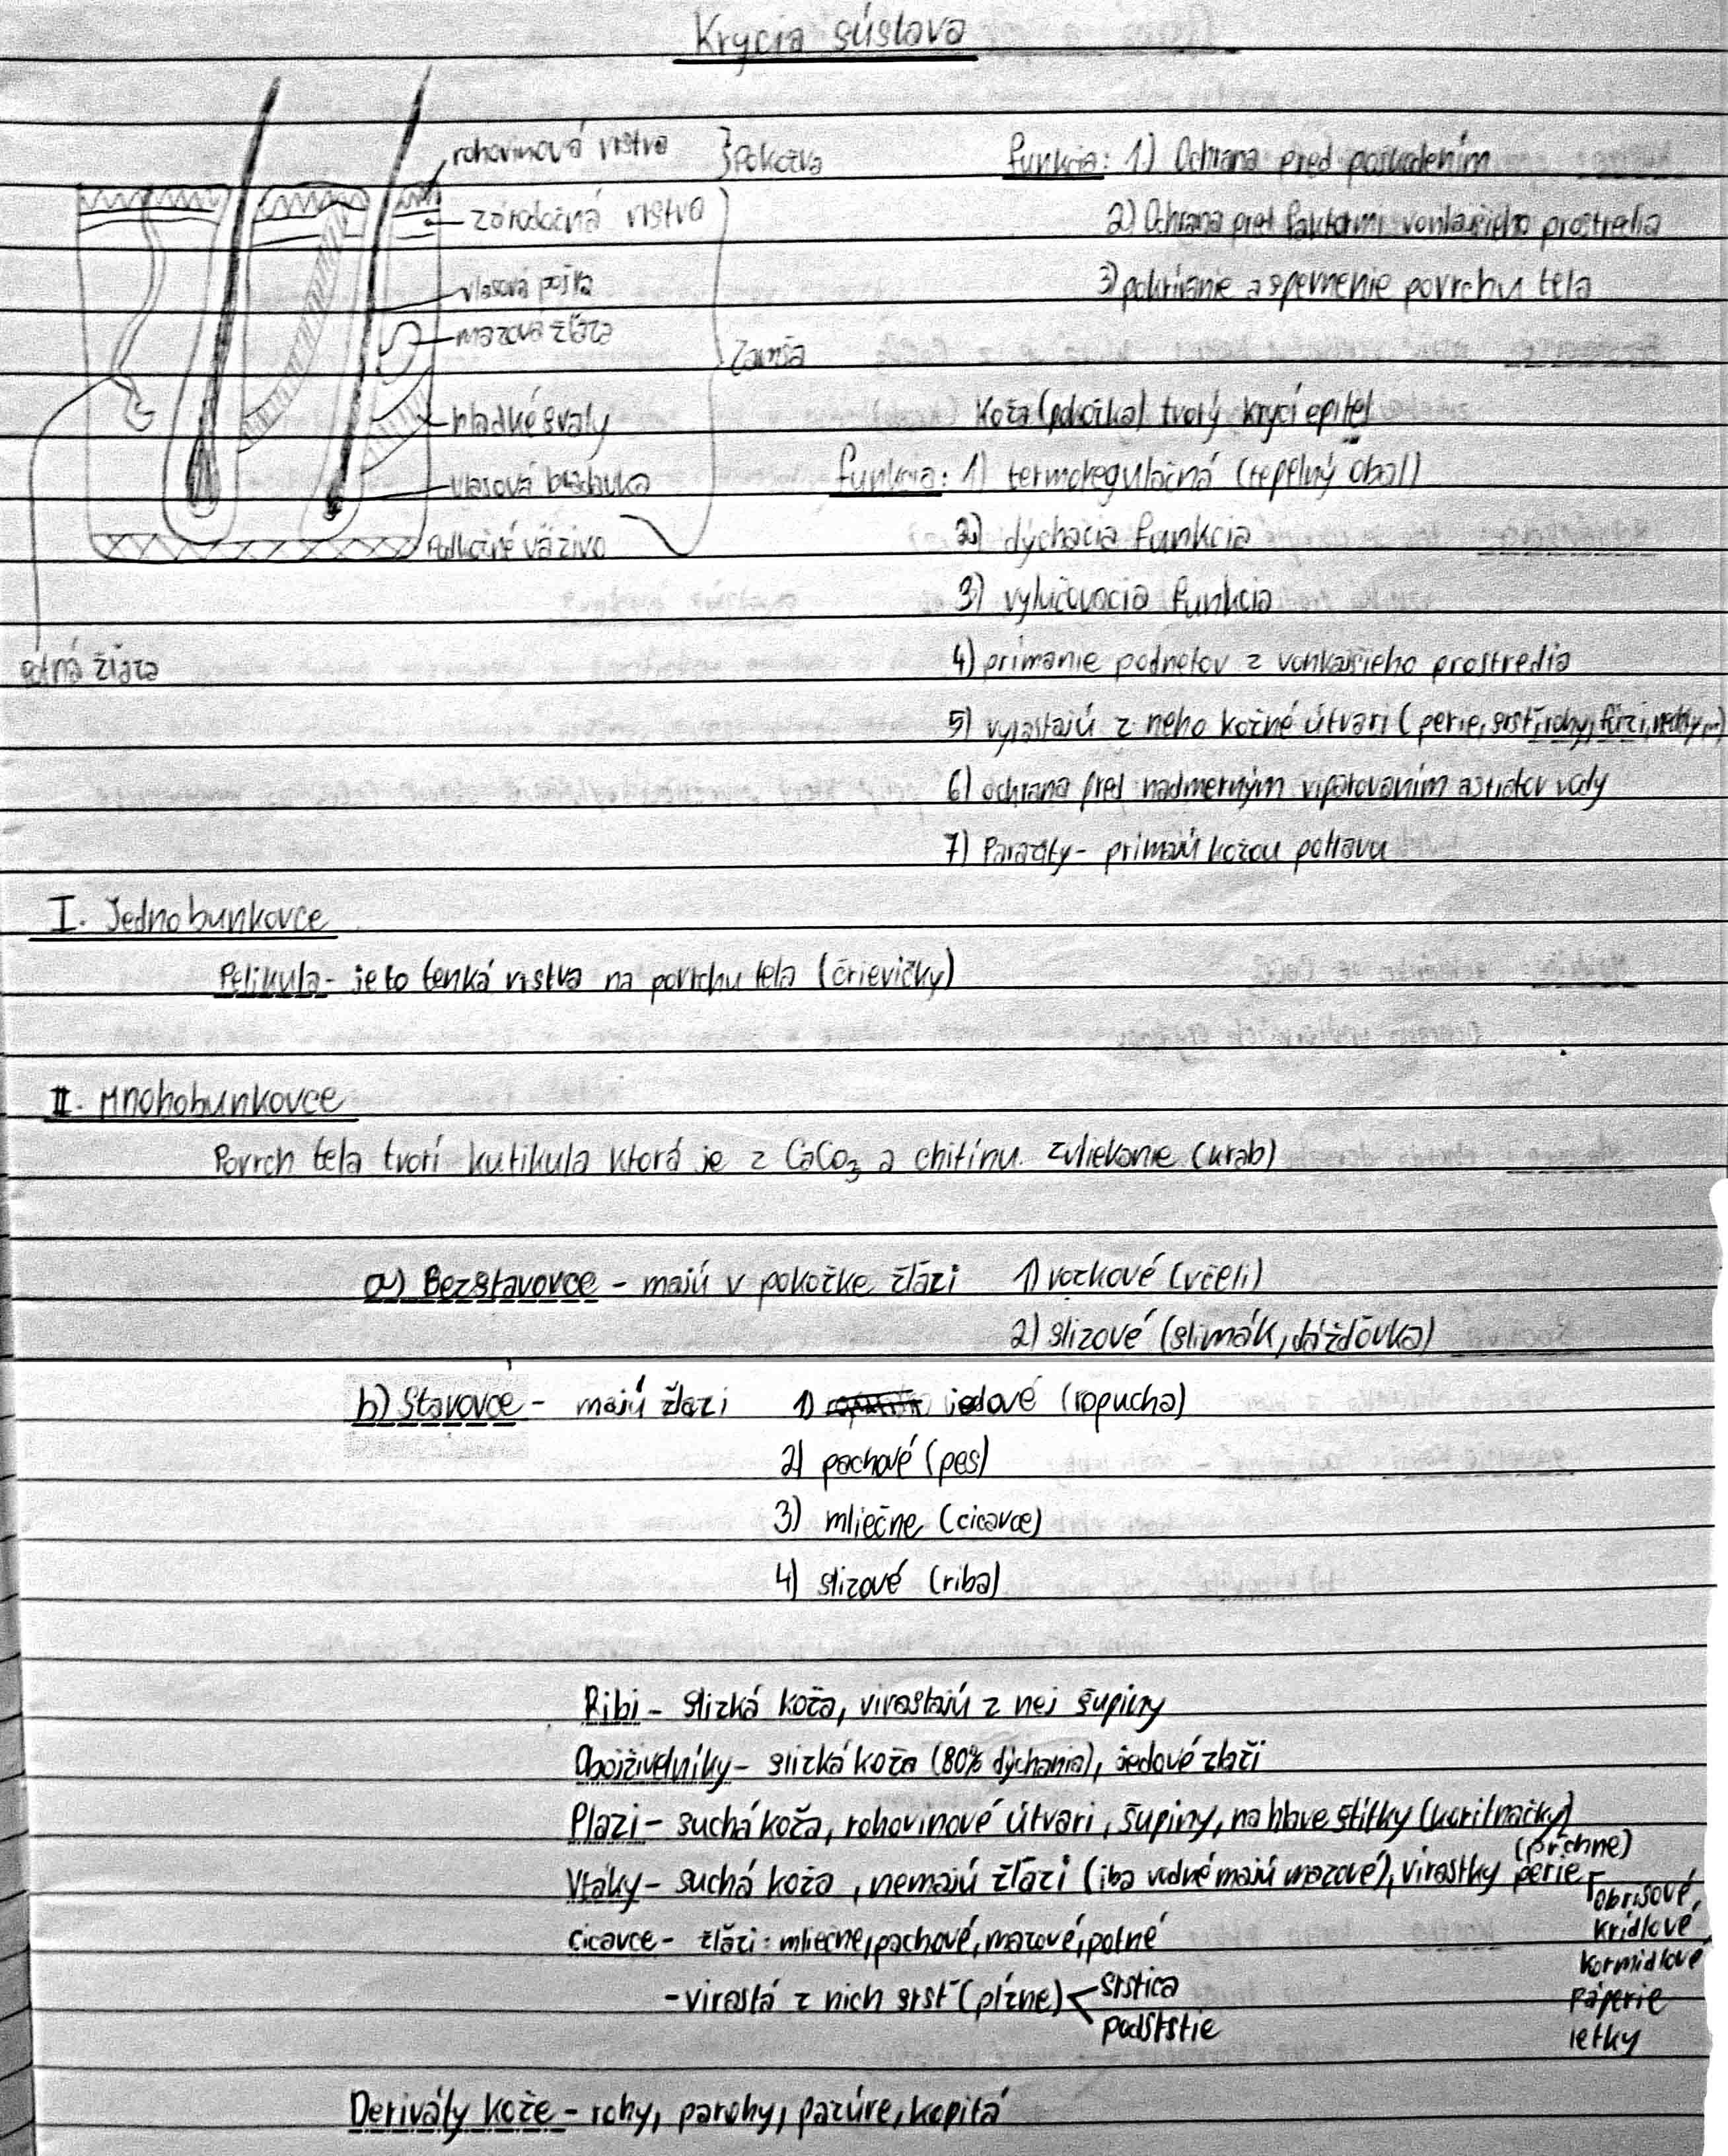 Krycia sústava
rohovinová vrstva } Pokožka
zárodočná vrstva
vlasová pošva
mazová žľaza
Zamša
hladké svaly
vlasová
Podkožné väzivo
potná žľaza
funkcia: 1) Ochrana pred poškodením
2) Ochrana pret faktormi vonkajšieho prostredia
3) pokrivanie a spevnenie povrchu tela
Koža (pokožka) tvorý krycí epitel
funkcia: 1) termoregulačná (tepelný obal)
2) dýchacia funkcia
3) vylučovacia funkcia
4) prímanie podnetov z vonkajšieho prostredia
5) vyrastajú z neho kožné útvari (perie, srsť, rohy, fúzi, nechty,...)
6) ochrana pret nadmerným viparovaním a stratov vody
7) Parazity - prímajú kožou potravu
I. Jednobunkovce
Pelikula - je to tenká vrstva na povrchu tela (črievičky)
II. Mnohobunkovce
Povrch tela tvorí kutikula ktorá je z CaCo3 a chitínu. zvliekanie (krab)
a) Bezstavovce - majú v pokožke žľázi 1) voskové (včeli)
2) slizové (slimák, dážďovka)
b) Stavovce - majú žlazi 1) jedové (ropucha)
2) pachové (pes)
3) mliečne (cicavce)
4) slizové (riba)
Ribi - slizká koža, virastajú z nej šupiny
Obojživelníky - slizká koža (80% dýchania), jedové zlaži
Plazi - suchá koža, rohovinové útvari, šupiny, na hlave štítky (koritnačky)
(pŕchne)
Vtáky - suchá koža, nemajú žľázi (iba vodné majú mazové), virastky perie
obrisové,
krídlové
kormidlové
páperie
letky
cicavce - žľázi: mliečne, pachové, mazové, potné
- virastá z nich srsť (pĺzne) < srstica
podsrstie
Deriváty kože - rohy, parohy, pazúre, kopitá